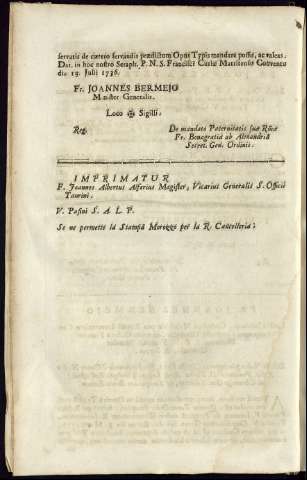 servatis de cætero servandis prædictum Opus Typis mandare possit, ac valeat.
Dat. in hoc nostro Seraph. P. N. S. Francisci Curiæ Matritensis Conventu
die 13. Julii 1736.
Fr. JOANNES BERMEJO
Minister Generalis.
Loco ✠ Sigilli.
De mandato Paternitatis suæ Rmæ
Reg. Fr. Benegratia ab Alexandria
Secret. Gen. Ordinis.
IMPRIMATUR
F. Joannes Albertus Alferius Magister, Vicarius Generalis S. Officii
Taurini.
V. Pasini S. A. L. P.
Se ne permette la Stampa Morozzo per la R. Cancelleria;